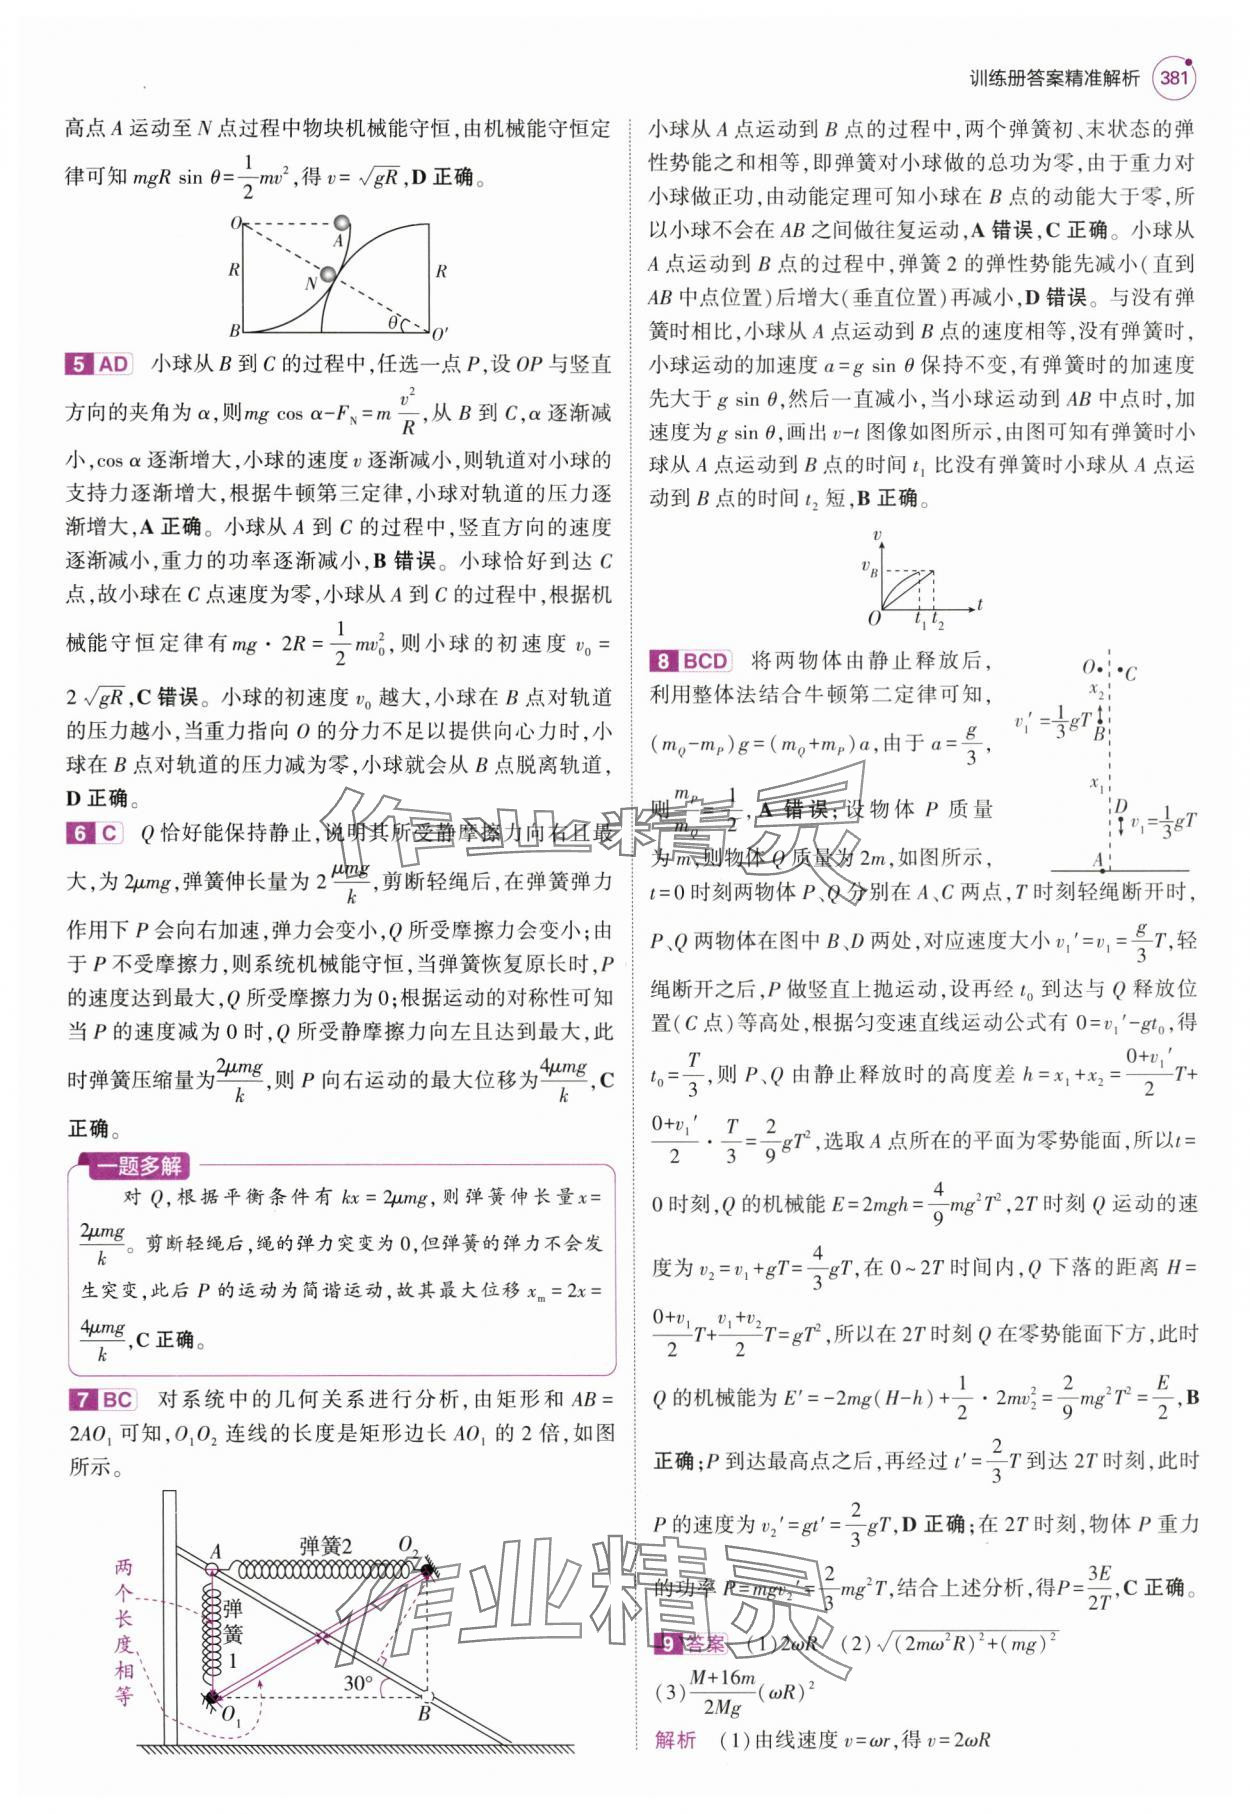 训练册答案精准解析 381
高点 A 运动至 N 点过程中物块机械能守恒,由机械能守恒定
律可知 mgR sin θ=1/2 mv²,得 v=√gR,D 正确。
O
A
R
N
R
B
θ
O′
5 AD 小球从 B 到 C 的过程中,任选一点 P,设 OP 与竖直
方向的夹角为 α,则mg cos α-F_N=m v²/R,从 B 到 C,α 逐渐减
小,cos α 逐渐增大,小球的速度 v 逐渐减小,则轨道对小球的
支持力逐渐增大,根据牛顿第三定律,小球对轨道的压力逐
渐增大,A 正确。小球从 A 到 C 的过程中,竖直方向的速度
逐渐减小,重力的功率逐渐减小,B 错误。小球恰好到达 C
点,故小球在 C 点速度为零,小球从 A 到 C 的过程中,根据机
械能守恒定律有 mg·2R=1/2 mv₀²,则小球的初速度 v₀=
2√gR,C 错误。小球的初速度 v₀ 越大,小球在 B 点对轨道
的压力越小,当重力指向 O 的分力不足以提供向心力时,小
球在 B 点对轨道的压力减为零,小球就会从 B 点脱离轨道,
D 正确。
6 C Q 恰好能保持静止,说明其所受静摩擦力向右且最
大,为 2μmg,弹簧伸长量为 2 μmg/k,剪断轻绳后,在弹簧弹力
作用下 P 会向右加速,弹力会变小,Q 所受摩擦力会变小;由
于 P 不受摩擦力,则系统机械能守恒,当弹簧恢复原长时,P
的速度达到最大,Q 所受摩擦力为 0;根据运动的对称性可知
当 P 的速度减为 0 时,Q 所受静摩擦力向左且达到最大,此
时弹簧压缩量为2μmg/k,则 P 向右运动的最大位移为4μmg/k,C
正确。
一题多解
对 Q,根据平衡条件有 kx=2μmg,则弹簧伸长量x=
2μmg/k。剪断轻绳后,绳的弹力突变为 0,但弹簧的弹力不会发
生突变,此后 P 的运动为简谐运动,故其最大位移 x_m=2x=
4μmg/k,C 正确。
7 BC 对系统中的几何关系进行分析,由矩形和 AB=
2AO₁ 可知,O₁O₂ 连线的长度是矩形边长 AO₁ 的 2 倍,如图
所示。
A
弹簧2
O₂
两个长度相等
弹簧1
30°
O₁
B
小球从 A 点运动到 B 点的过程中,两个弹簧初、末状态的弹
性势能之和相等,即弹簧对小球做的总功为零,由于重力对
小球做正功,由动能定理可知小球在 B 点的动能大于零,所
以小球不会在 AB 之间做往复运动,A 错误,C 正确。小球从
A 点运动到 B 点的过程中,弹簧 2 的弹性势能先减小(直到
AB 中点位置)后增大(垂直位置)再减小,D 错误。与没有弹
簧时相比,小球从 A 点运动到 B 点的速度相等,没有弹簧时,
小球运动的加速度 a=g sin θ 保持不变,有弹簧时的加速度
先大于 g sin θ,然后一直减小,当小球运动到 AB 中点时,加
速度为 g sin θ,画出 v-t 图像如图所示,由图可知有弹簧时小
球从 A 点运动到 B 点的时间 t₁ 比没有弹簧时小球从 A 点运
动到 B 点的时间 t₂ 短,B 正确。
v
v_B
O
t₁ t₂
t
8 BCD 将两物体由静止释放后,
利用整体法结合牛顿第二定律可知,
(m_Q-m_P)g=(m_Q+m_P)a,由于 a=g/3,
则 m_P/m_Q=1/2,A 错误;设物体 P 质量
为 m,则物体 Q 质量为 2m,如图所示,
O
C
x₂
v₁′=1/3 gT
B
x₁
D
v₁=1/3 gT
A
t=0 时刻两物体 P、Q 分别在 A、C 两点,T 时刻轻绳断开时,
P、Q 两物体在图中 B、D 两处,对应速度大小 v₁′=v₁=g/3 T,轻
绳断开之后,P 做竖直上抛运动,设再经 t₀ 到达与 Q 释放位
置(C 点)等高处,根据匀变速直线运动公式有 0=v₁′-gt₀,得
t₀=T/3,则 P、Q 由静止释放时的高度差 h=x₁+x₂=(0+v₁′)/2 T+
(0+v₁′)/2·T/3=2/9 gT²,选取 A 点所在的平面为零势能面,所以t=
0 时刻,Q 的机械能 E=2mgh=4/9 mg²T²,2T 时刻 Q 运动的速
度为 v₂=v₁+gT=4/3 gT,在 0~2T 时间内,Q 下落的距离 H=
(0+v₁)/2 T+(v₁+v₂)/2 T=gT²,所以在 2T 时刻 Q 在零势能面下方,此时
Q 的机械能为 E′=-2mg(H-h)+1/2·2mv₂²=2/9 mg²T²=E/2,B
正确;P 到达最高点之后,再经过 t′=2/3 T 到达 2T 时刻,此时
P 的速度为 v₂′=gt′=2/3 gT,D 正确;在 2T 时刻,物体 P 重力
的功率 P=mgv₂′=2/3 mg²T,结合上述分析,得P=3E/2T,C 正确。
9 答案 (1)2ωR (2)√(2mω²R)²+(mg)²
(3)(M+16m)/2Mg (ωR)²
解析 (1)由线速度 v=ωr,得 v=2ωR
作业精灵
作业精灵